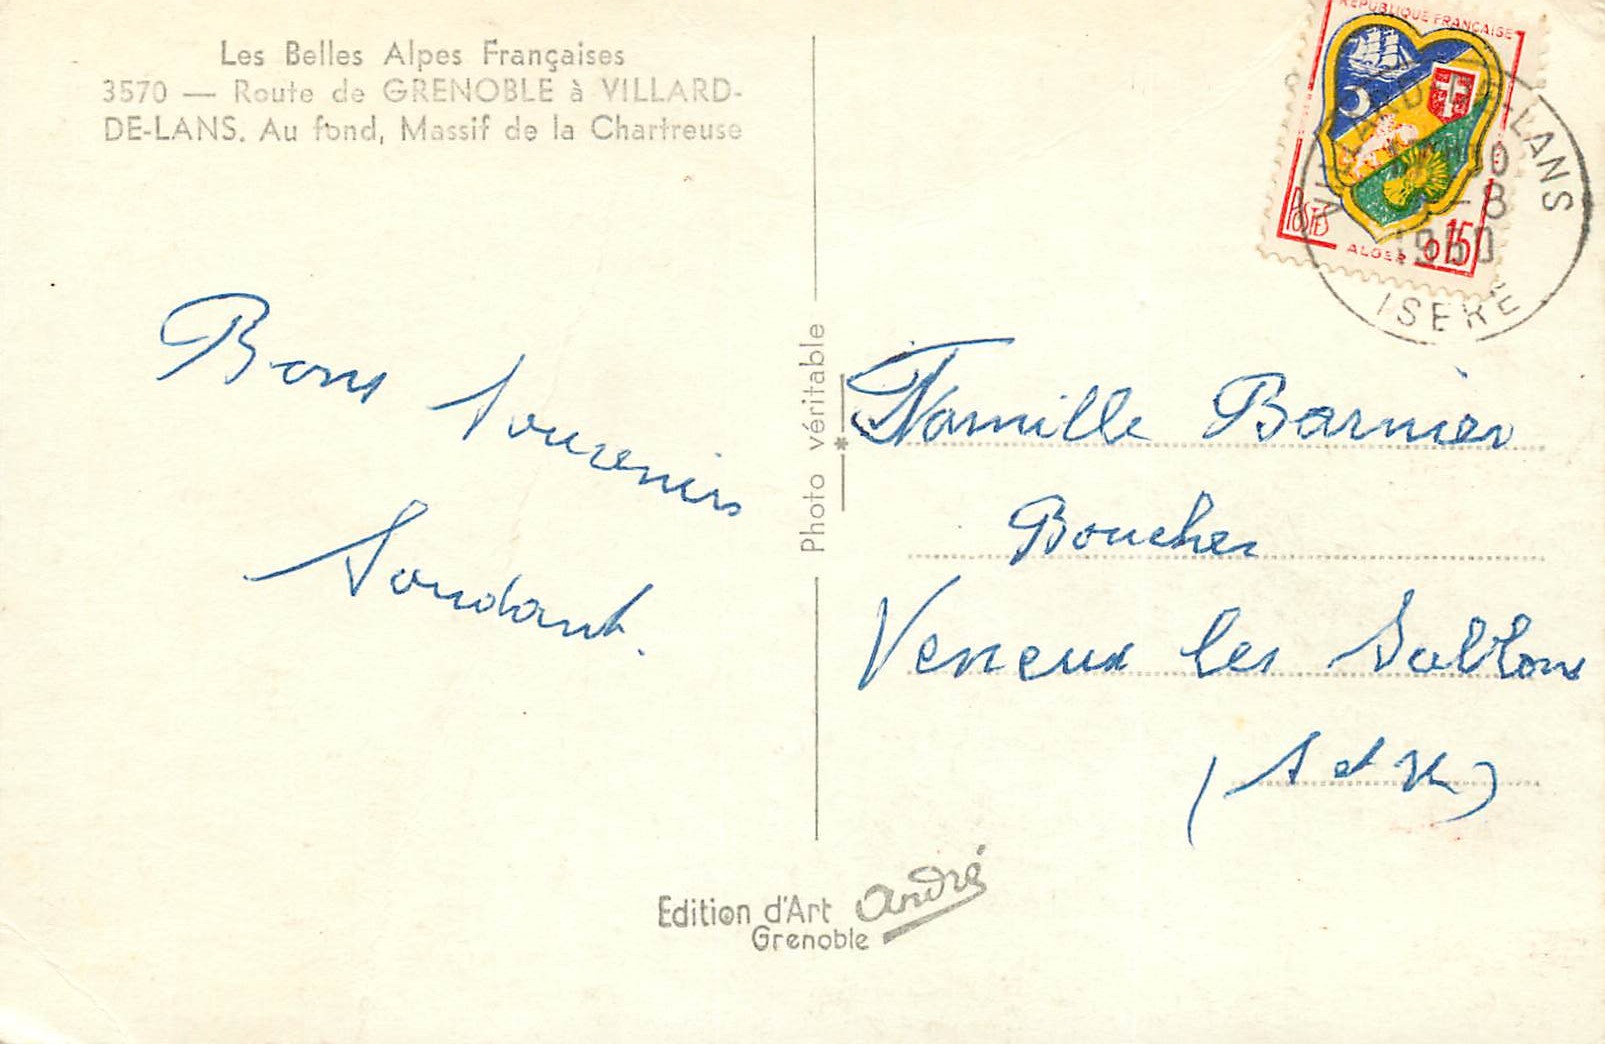 Les Belles Alpes Françaises
3570 — Route de GRENOBLE à VILLARD-
DE-LANS. Au fond, Massif de la Chartreuse
Bons Souvenirs
Soudant.
Photo véritable
RÉPUBLIQUE FRANÇAISE
POSTES
ALGER
0,15
VILLARD-DE-LANS
-8
1960
ISERE
Famille Barnier
Boucher
Veneux les Sablons
(S et M)
Edition d'Art André
Grenoble